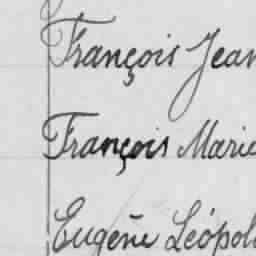 François Jean
François Marie
Eugène Léopol